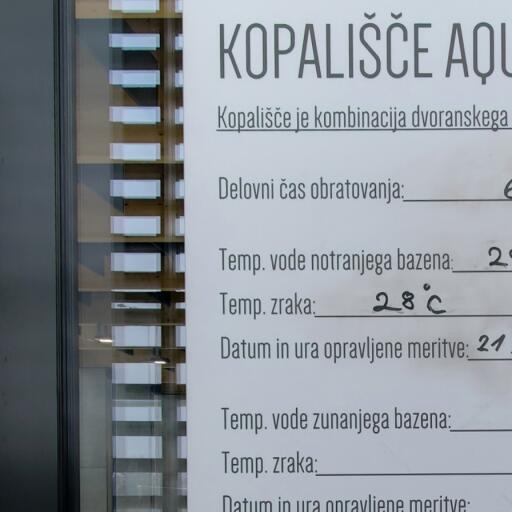 KOPALIŠČE
Kopališče je kombinacija dvoranskega
Delovni čas obratovanja:
Temp. vode notranjega bazena:
Temp. zraka: 28°C
Datum in ura opravljene meritve: 21
Temp. vode zunanjega bazena:
Temp. zraka:
Datum in ura opravljene meritve: